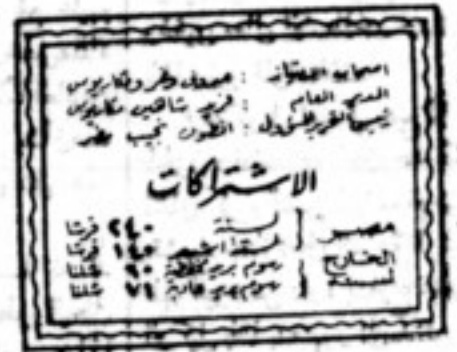 اصحاب الامتياز : صروف ونمر ومكاريوس
المدير العام : فريد شاهين مكاريوس
رئيس التحرير المسؤول : انطون نجيب مطر
الاشتراكات
مصر لسنة ٢٤٠ قرشا
لستة اشهر ١٤٥ قرشا
الخارج لسنة رسوم بريد مخفضة ٦٠ شلنا
رسوم بريد عادية ٧٦ شلنا